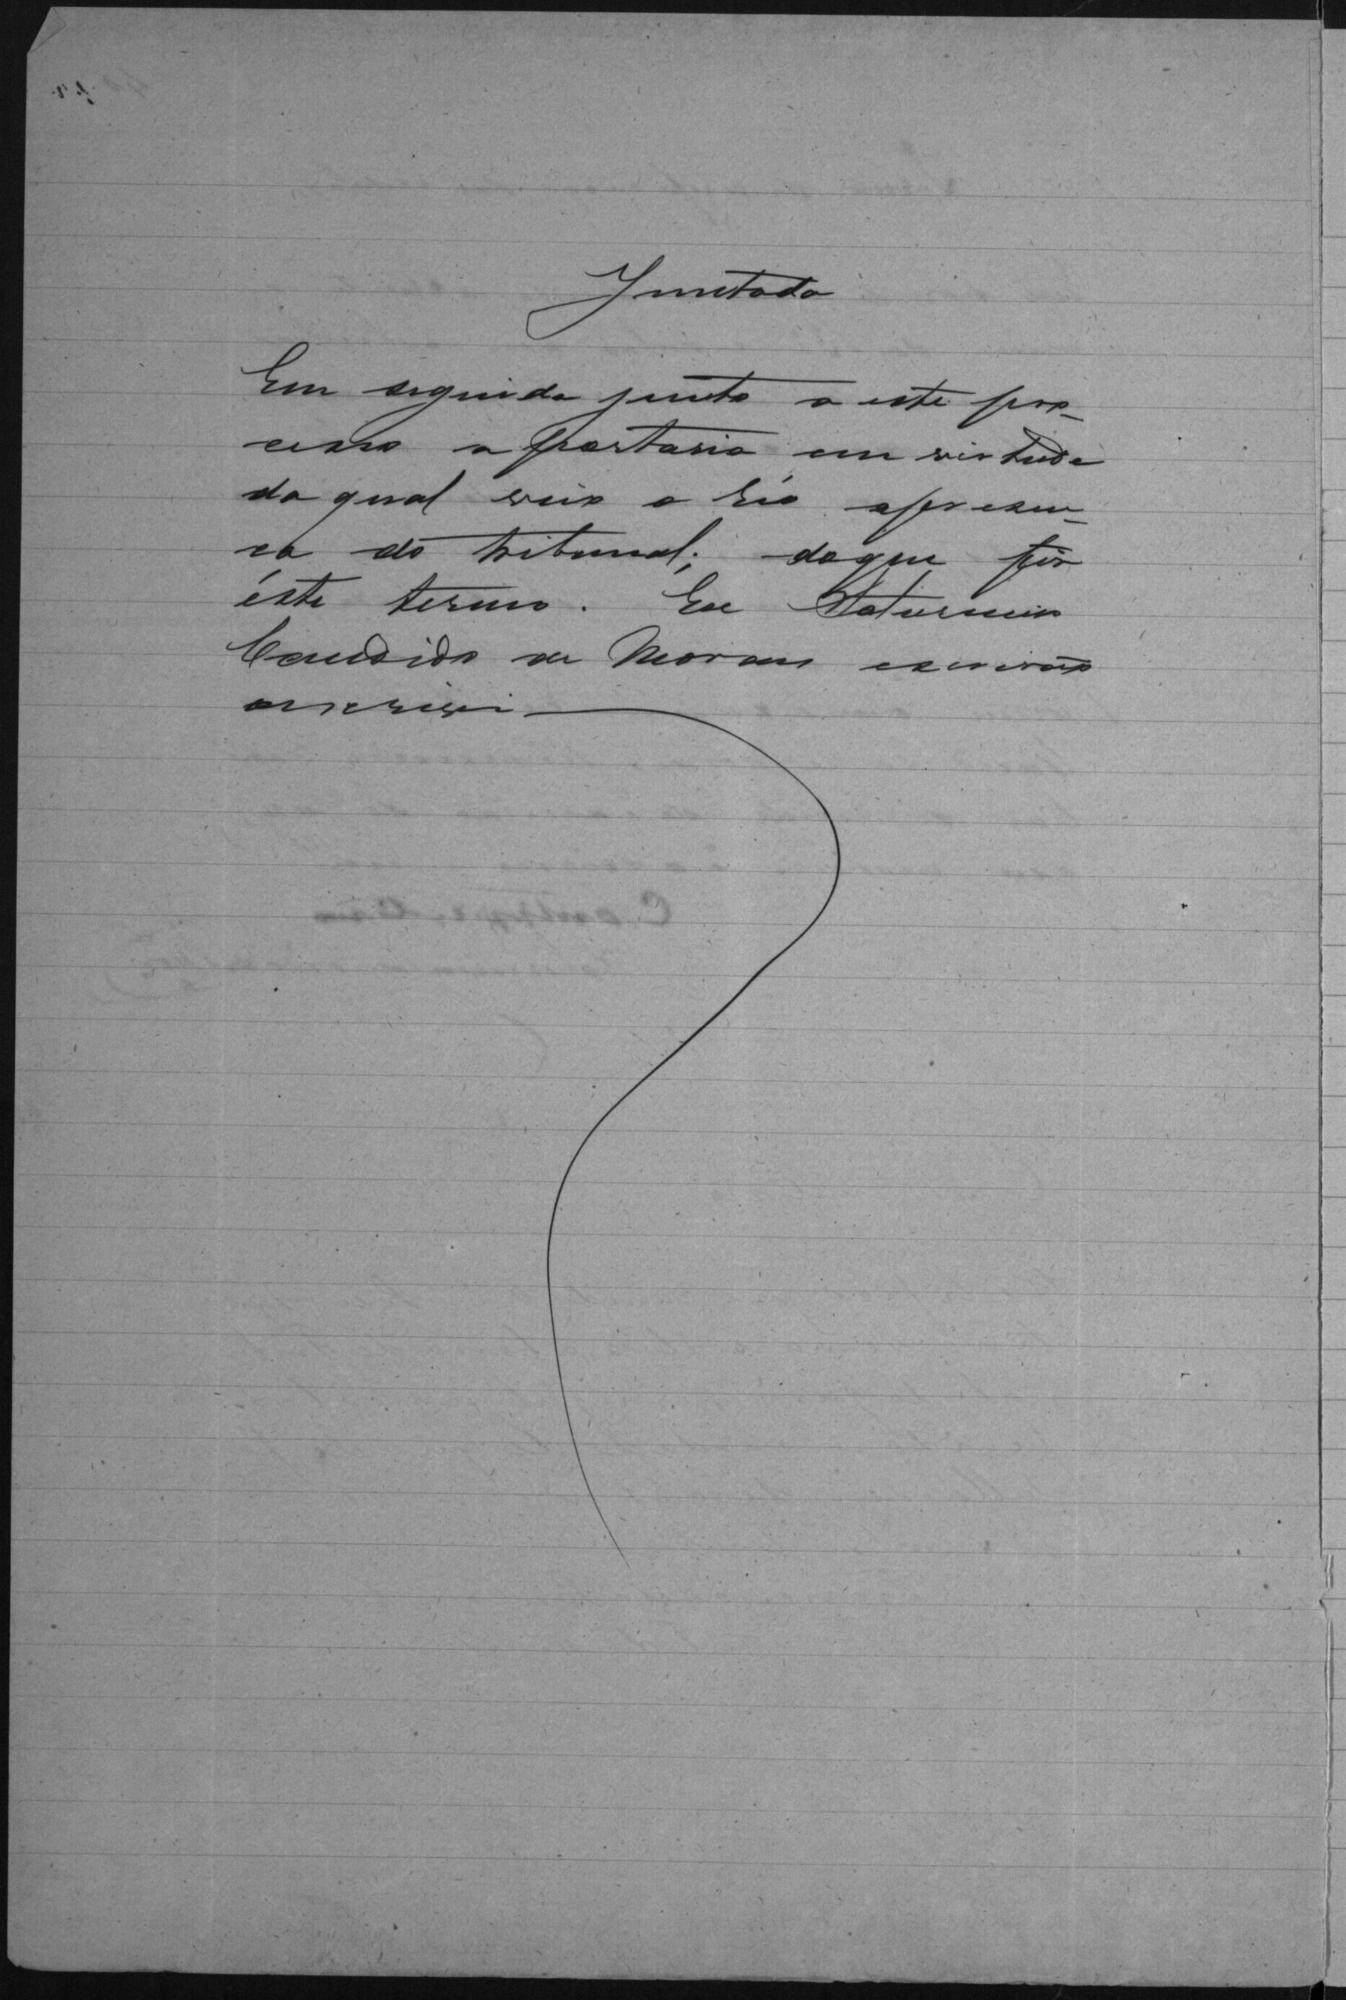 Juntada
Em seguida junto a este pro-
cesso a portaria em virtude
da qual veio o réo apresen-
ca do tribunal; do que fiz
éste termo. Eu Saturnino
Candido de Moraes escrivão
oescrivi